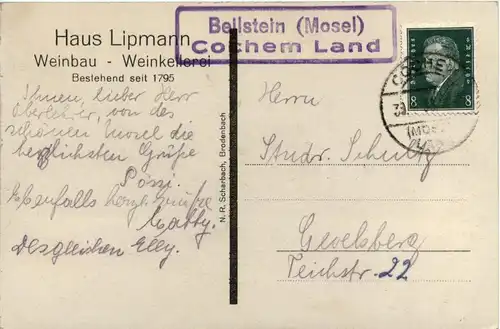 Haus Lipmann
Weinbau - Weinkellerei
Bestehend seit 1795
Beilstein (Mosel)
Cochem Land
Ihnen, lieber Herr
Oberlehrer, von der
schönen Mosel die
herzlichsten Grüße
Ebenfalls herzl. Grüße
Catty.
Desgleichen Elly.
N. R. Scharbach, Brodenbach
8 8
COCHEM
(MOSEL)
Herrn
Studr. Schultz
Gevelsberg
Teichstr. 22